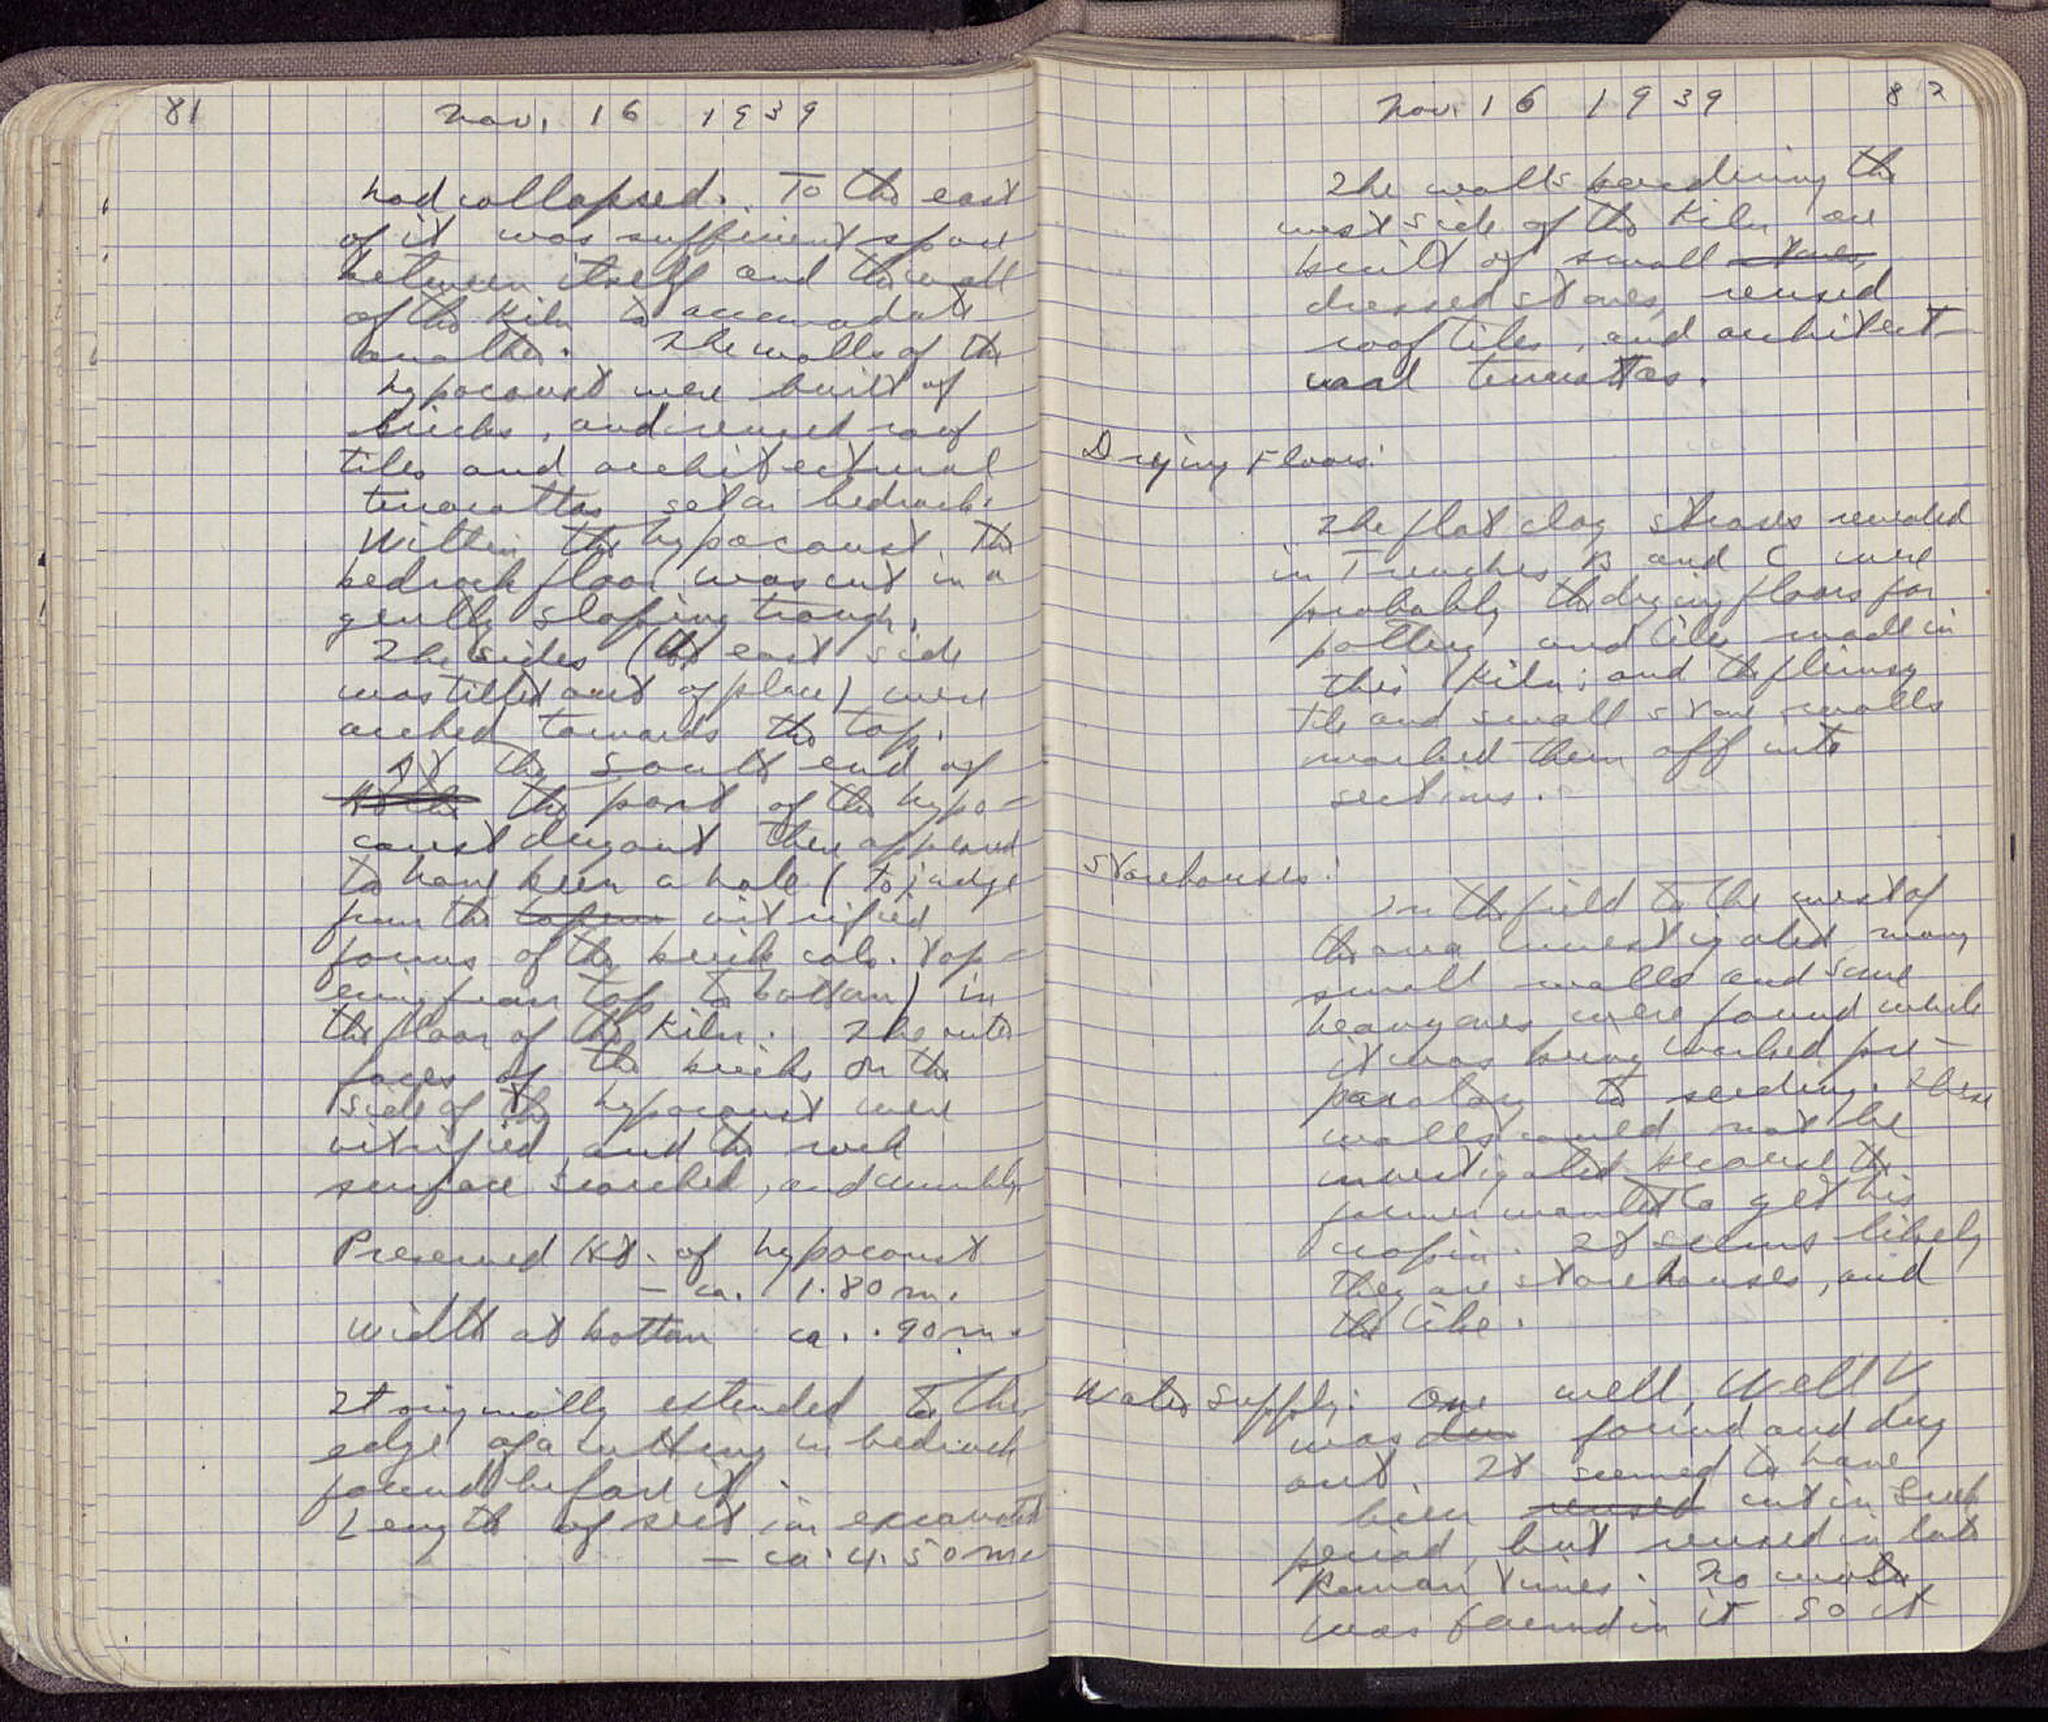 81
Nov. 16 1939
had collapsed. To the east
of it was sufficient space
between itself and the wall
of the kiln to accomodate
another. The walls of the
hypocaust were built of
bricks, and reused roof
tiles and architectural
terracottas set on bedrock.
Within the hypocaust the
bedrock floor was cut in a
gently sloping trough.
The sides (the east side
was tilted out of place) were
arched towards the top.
At the south end of
the part of the hypo-
caust dugout there appeared
to have been a hole (to judge
from the vitrified
forms of the brick cols. tap-
ering from top to bottom) in
the floor of the kiln. The outer
faces of the bricks on the
side of the hypocaust were
vitrified and the rock
surface scorched, and crumbly.
Preserved Ht. of hypocaust
- ca. 1.80 m.
Width at bottom ca. .90 m.
It originally extended to the
edge of a cutting in bedrock
found before it.
Length of in excavated
- ca. 4.50 m.
Nov. 16 1939
82
The walls bordering the
west side of the kiln are
built of small stones,
dressed stones, reused
roof tiles, and architect-
ural terracottas.
Drying Floors:
The flat clay strosis revealed
in Trenches B and C were
probably the drying floors for
pottery and tiles made in
this kiln; and the flimsy
tile and small stone walls
marked them off into
sections.
Storehouses:
In the field to the west of
the area investigated many
small walls and some
heavy ones were found while
it was being worked pre-
paratory to seeding. These
walls could not be
investigated because the
farmer wanted to get his
crop in. It seems likely
they are storehouses, and
the like.
Water Supply: One well, Well V,
was found and dug
out. It seemed to have
been reused cut in Greek
period, but reused in late
Roman times. No water
was found in it so it